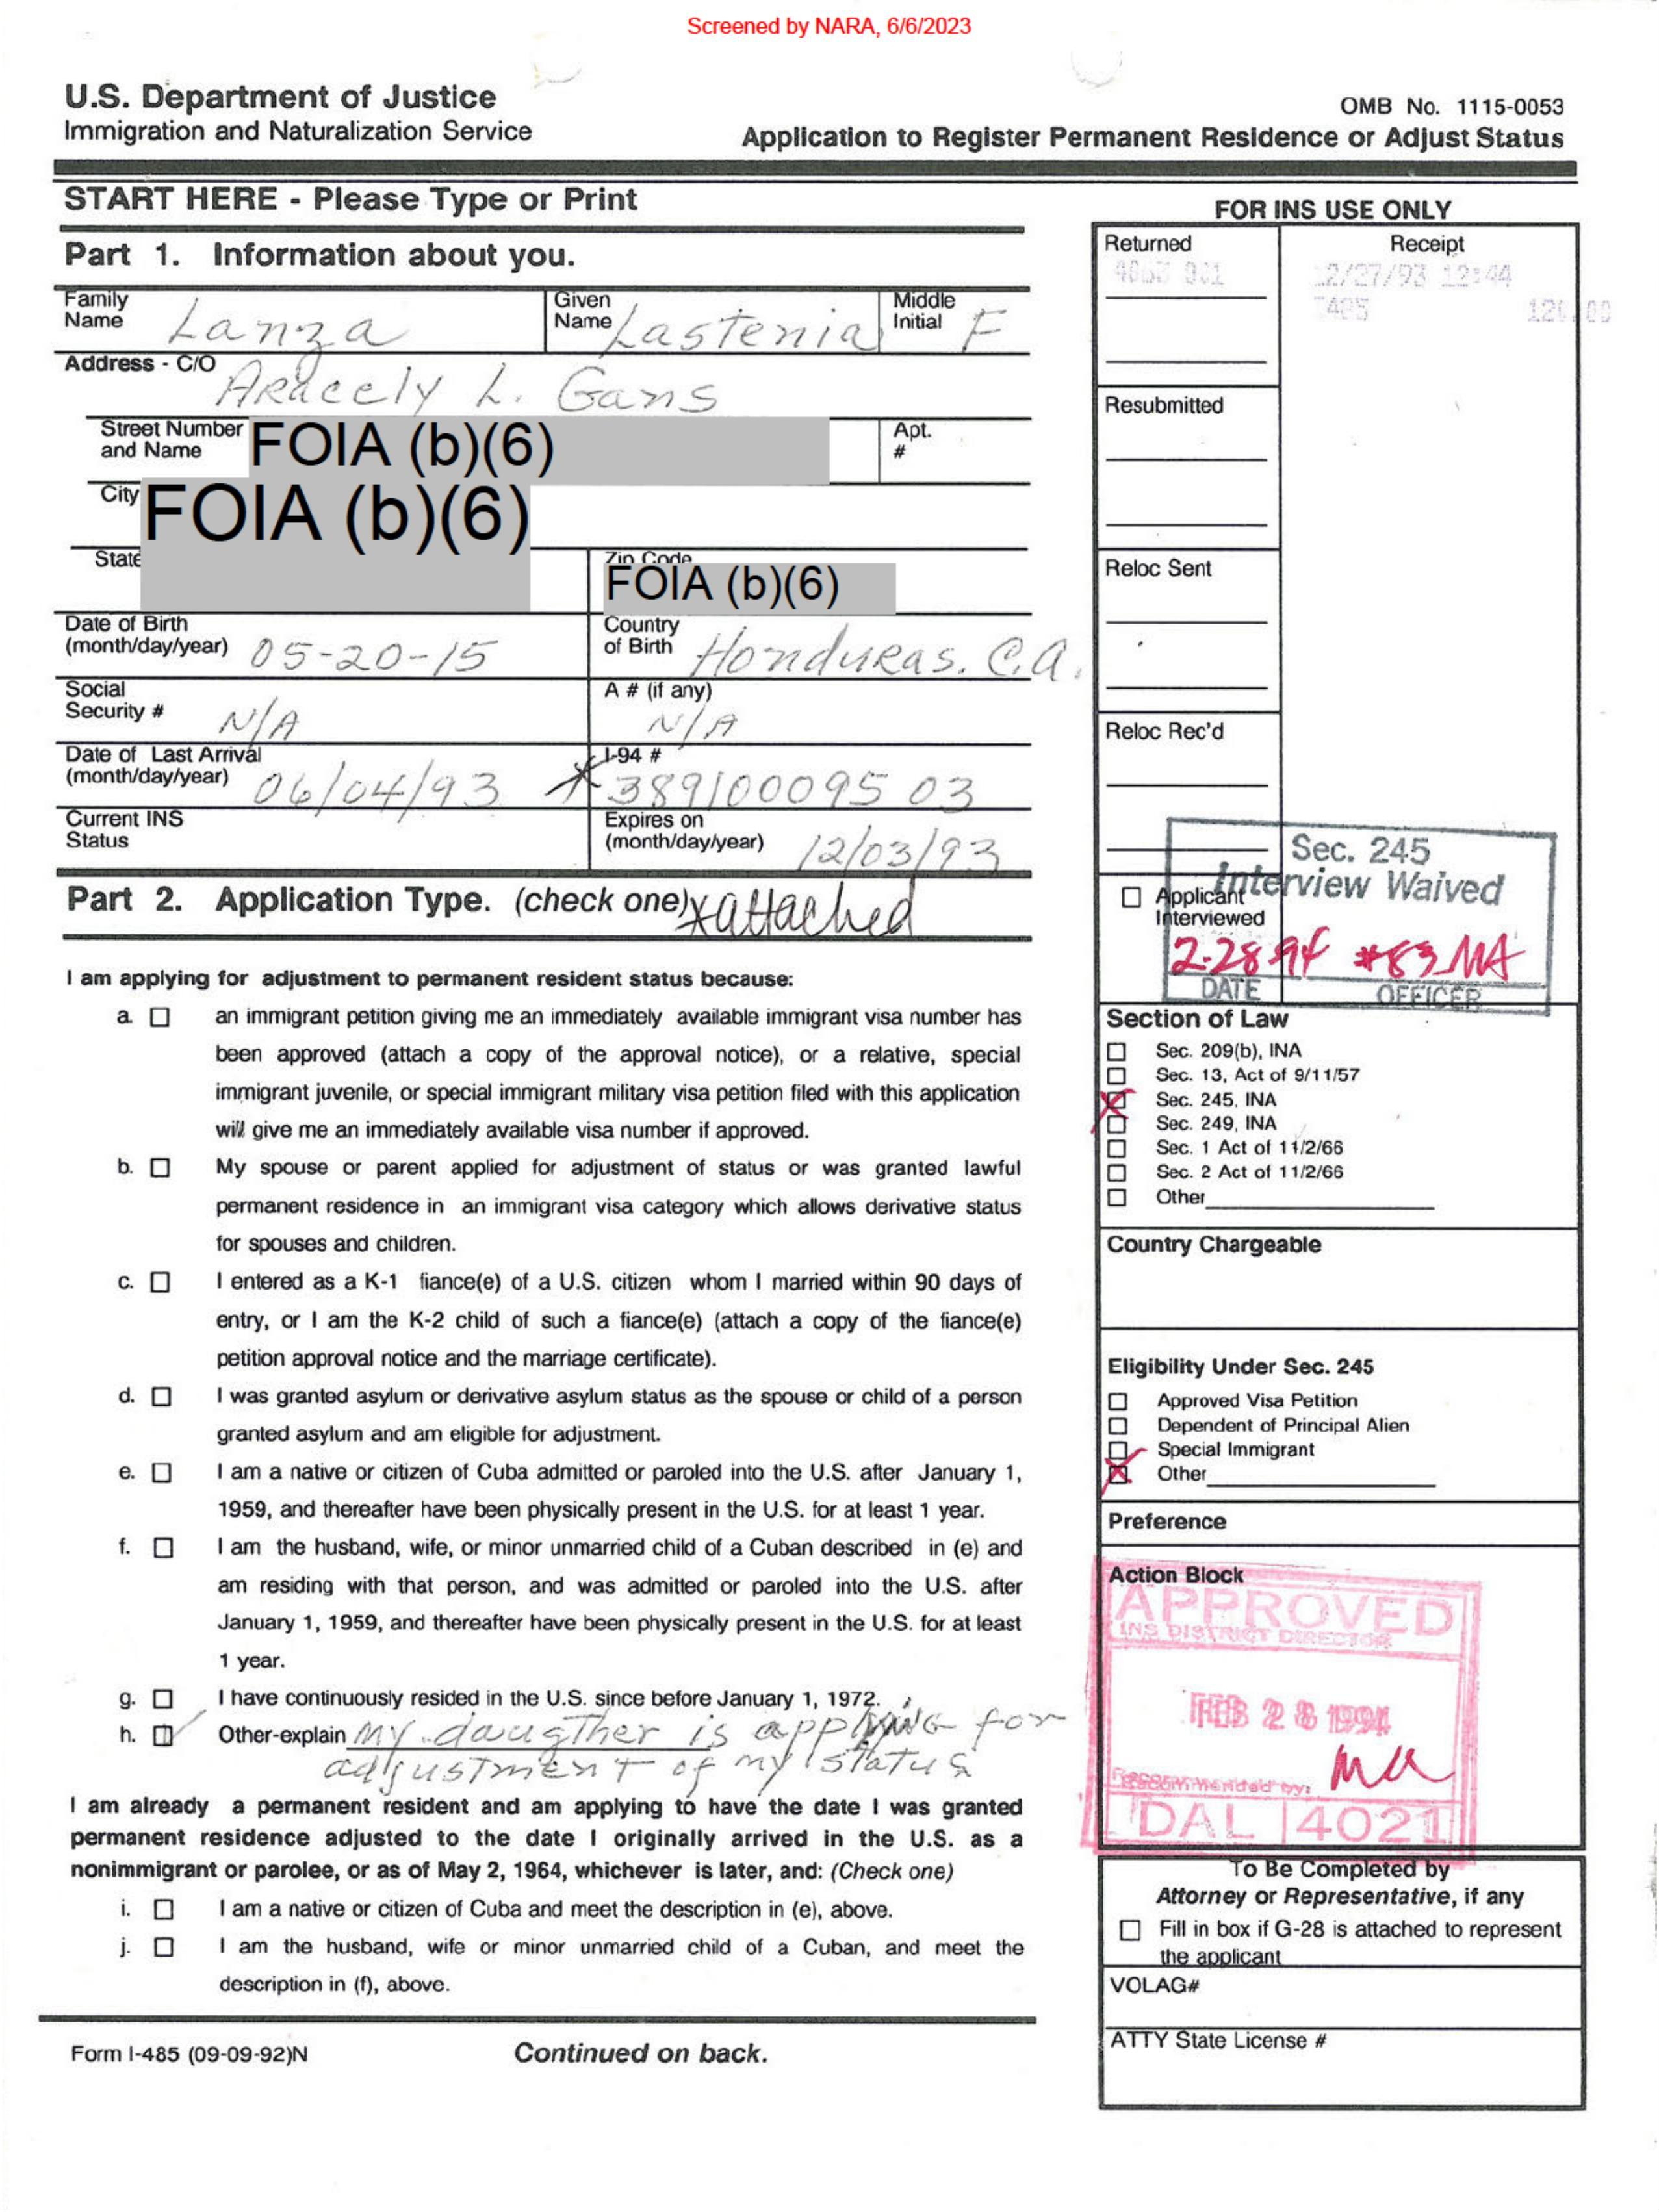 Screened by NARA, 6/6/2023
U.S. Department of Justice
Immigration and Naturalization Service
OMB No. 1115-0053
Application to Register Permanent Residence or Adjust Status
START HERE - Please Type or Print
Part 1. Information about you.
Family Name Lanza
Given Name Lastenia
Middle Initial F
Address - C/O Aracely L. Gans
Street Number and Name FOIA (b)(6)
Apt. #
City FOIA (b)(6)
State
Zip Code FOIA (b)(6)
Date of Birth (month/day/year) 05-20-15
Country of Birth Honduras. C.A.
Social Security # N/A
A # (if any) N/A
Date of Last Arrival (month/day/year) 06/04/93
I-94 # 389100095 03
Current INS Status
Expires on (month/day/year) 12/03/93
Part 2. Application Type. (check one) x attached
I am applying for adjustment to permanent resident status because:
a. an immigrant petition giving me an immediately available immigrant visa number has
been approved (attach a copy of the approval notice), or a relative, special
immigrant juvenile, or special immigrant military visa petition filed with this application
will give me an immediately available visa number if approved.
b. My spouse or parent applied for adjustment of status or was granted lawful
permanent residence in an immigrant visa category which allows derivative status
for spouses and children.
c. I entered as a K-1 fiance(e) of a U.S. citizen whom I married within 90 days of
entry, or I am the K-2 child of such a fiance(e) (attach a copy of the fiance(e)
petition approval notice and the marriage certificate).
d. I was granted asylum or derivative asylum status as the spouse or child of a person
granted asylum and am eligible for adjustment.
e. I am a native or citizen of Cuba admitted or paroled into the U.S. after January 1,
1959, and thereafter have been physically present in the U.S. for at least 1 year.
f. I am the husband, wife, or minor unmarried child of a Cuban described in (e) and
am residing with that person, and was admitted or paroled into the U.S. after
January 1, 1959, and thereafter have been physically present in the U.S. for at least
1 year.
g. I have continuously resided in the U.S. since before January 1, 1972.
h. Other-explain My daugther is applying for
adjustment of my status
I am already a permanent resident and am applying to have the date I was granted
permanent residence adjusted to the date I originally arrived in the U.S. as a
nonimmigrant or parolee, or as of May 2, 1964, whichever is later, and: (Check one)
i. I am a native or citizen of Cuba and meet the description in (e), above.
j. I am the husband, wife or minor unmarried child of a Cuban, and meet the
description in (f), above.
Form I-485 (09-09-92)N
Continued on back.
FOR INS USE ONLY
Returned
Receipt
12/27/93 12:44
Resubmitted
Reloc Sent
Reloc Rec'd
Applicant Interviewed
Sec. 245
Interview Waived
2-28-94 #83 MA
DATE OFFICER
Section of Law
Sec. 209(b), INA
Sec. 13, Act of 9/11/57
Sec. 245, INA
Sec. 249, INA
Sec. 1 Act of 11/2/66
Sec. 2 Act of 11/2/66
Other
Country Chargeable
Eligibility Under Sec. 245
Approved Visa Petition
Dependent of Principal Alien
Special Immigrant
Other
Preference
Action Block
APPROVED
INS DISTRICT DIRECTOR
FEB 28 1994
Recommended by: MA
DAL 4021
To Be Completed by
Attorney or Representative, if any
Fill in box if G-28 is attached to represent
the applicant
VOLAG#
ATTY State License #